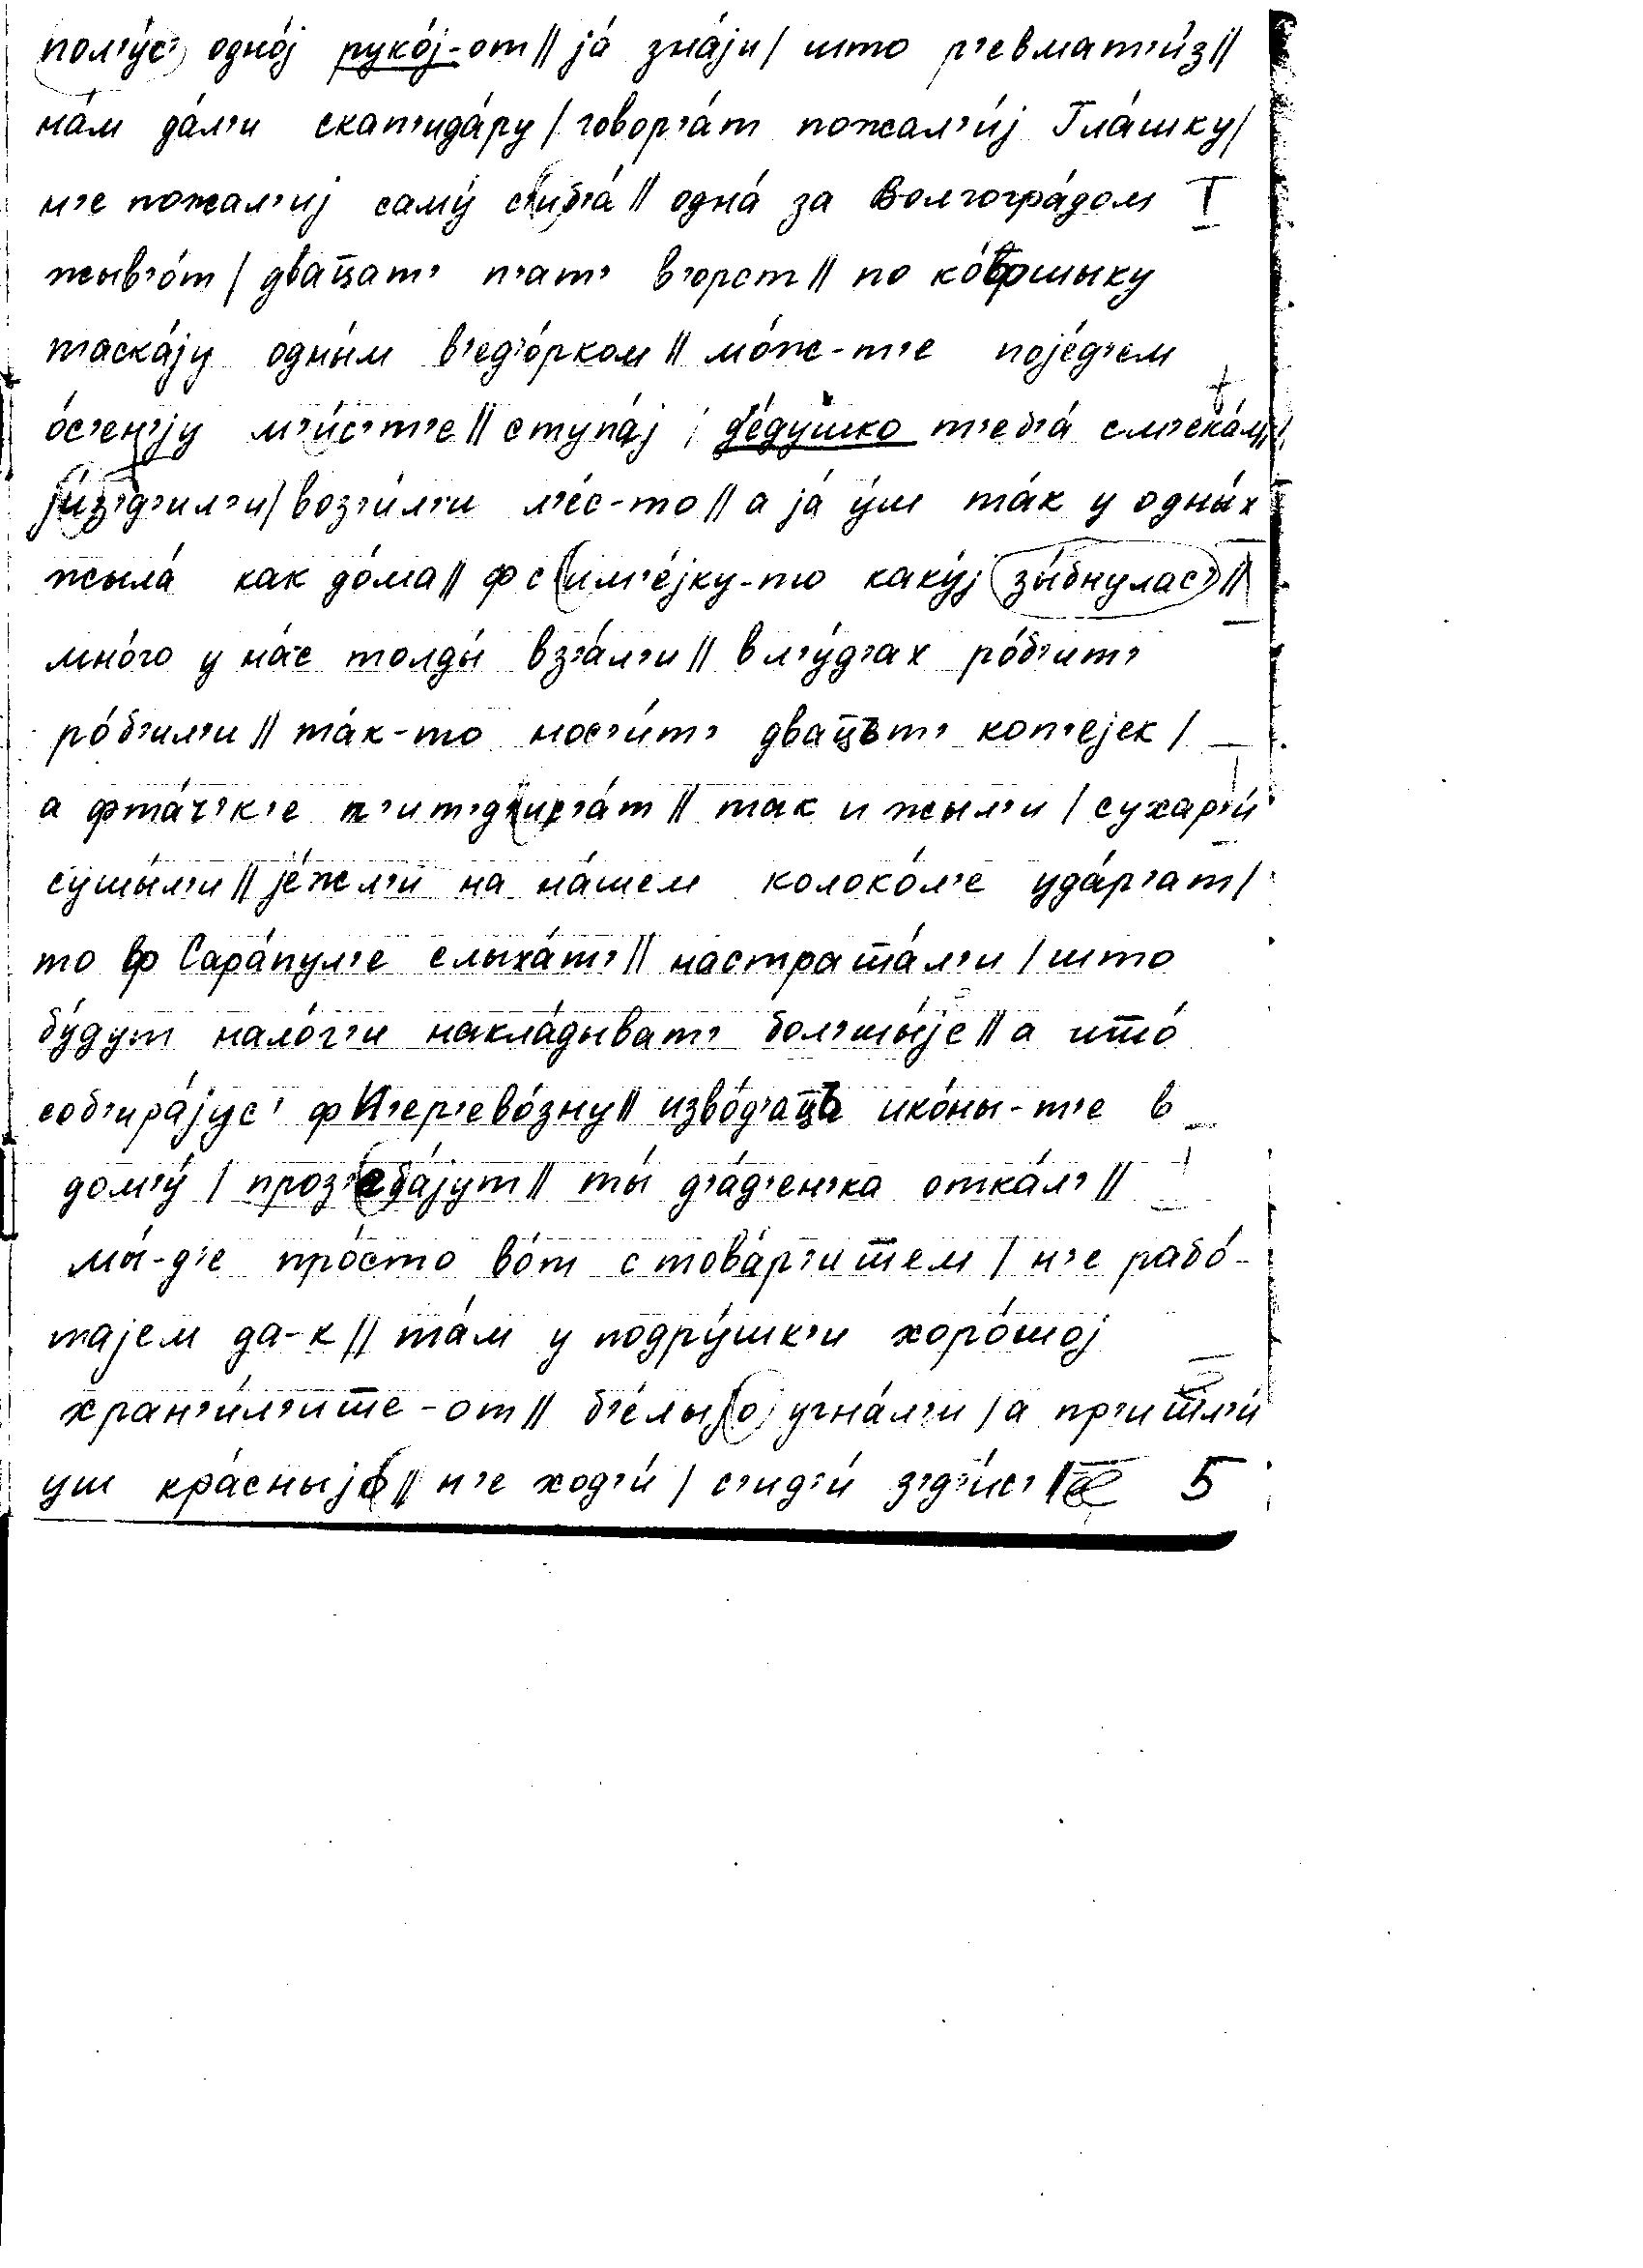 пол'у́с' одно́j руко́j-от // jа́ зна́jу / што р'евмат'и́з //
на́м да́л'и скап'ида́ру / говор'а́т пожал'и́j Гла́шку /
н'е пожал'иj саму́ с'иб'а́ // одна́ за Волгогра́дом
жыв'о́т / двац̄ат' п'ат' в'орст // по ко́вошыку
таска́jу одны́м в'ед'о́рком // мо́ж-т'е поjе́д'ем
о́с'ен'jу м'и́с'т'е // ступа́j / д'е́душко т'еб'а́
jи́з'д'ил'и / воз'и́л'и л'е́с-то // а jа́ у́ш та́к у одны́х
жыла́ как до́ма // ф с'им'е́jку-то каку́j зы́бнулас' //
мно́го у на́с толды́ вз'а́л'и // в л'у́д'ах ро́б'ит'
ро́б'ил'и // та́к-то нос'и́т' двац̄ът' коп'еjек /
а фта́ч'к'е п'ит'д'ис'а́т // так и жыл'и / сухар'и́
сушы́л'и // jе́жл'и на на́шем колоко́л'е уда́р'ат /
то ф Сара́пул'е слыха́т' // настраш̄а́л'и / што
бу́дут нало́г'и накла́дыват' бол'шы́jе // а што́
соб'ира́jус' ф П'ер'ево́зну // изво́д'ац̄ъ ико́ны-т'е в
дом'у́ / проз'еба́jут // ты́ д'а́д'ен'ка отка́л' //
мы́-д'е про́сто во́т с това́р'иш̄ем / н'е рабо́-
таjем да-к // та́м у подру́шк'и хоро́шоj
хран'и́л'иш̄е-от // б'е́лыjо угна́л'и / а пр'ишл'и́
уш кра́сныjо // н'е ход'и́ / с'ид'и́ з'д'и́с' // 5